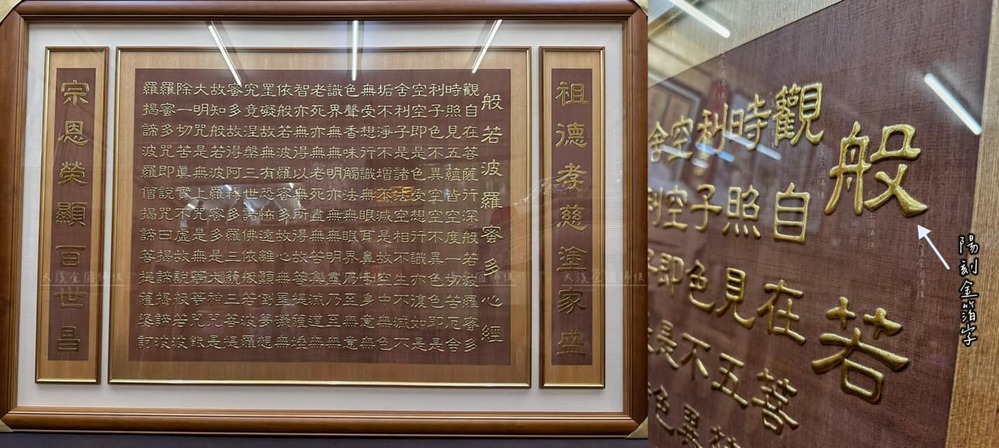 祖德孝慈塗家盛
般若波羅蜜多心經
觀自在菩薩行深般若波羅蜜多
時照見五蘊皆空度一切苦厄舍
利子色不異空空不異色色即是
空空即是色受想行識亦復如是
舍利子是諸法空相不生不滅不
垢不淨不增不減是故空中無色
無受想行識無眼耳鼻舌身意無
色聲香味觸法無眼界乃至無意
識界無無明亦無無明盡乃至無
老死亦無老死盡無苦集滅道無
智亦無得以無所得故菩提薩埵
依般若波羅蜜多故心無罣礙無
罣礙故無有恐怖遠離顛倒夢想
究竟涅槃三世諸佛依般若波羅
蜜多故得阿耨多羅三藐三菩提
故知般若波羅蜜多是大神咒是
大明咒是無上咒是無等等咒能
除一切苦真實不虛故說般若波
羅蜜多咒即說咒曰揭諦揭諦波
羅揭諦波羅僧揭諦菩提薩婆訶
宗恩榮顯百世昌
陽刻金箔字
般若
觀自在菩
時照見五
利子色不異
空空即是色
舍